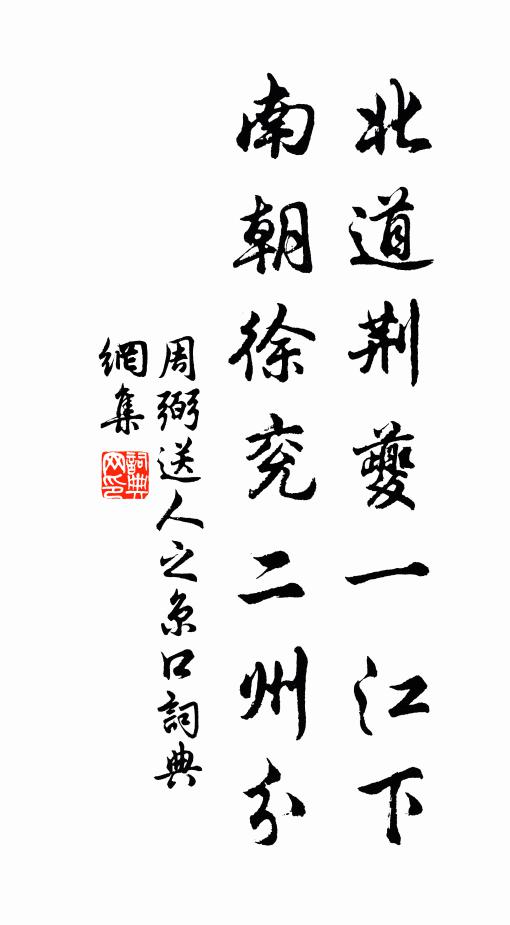 北道荆夔一江下
南朝徐兗二州分
周弼送人之京口詞典
網集
詞典網印